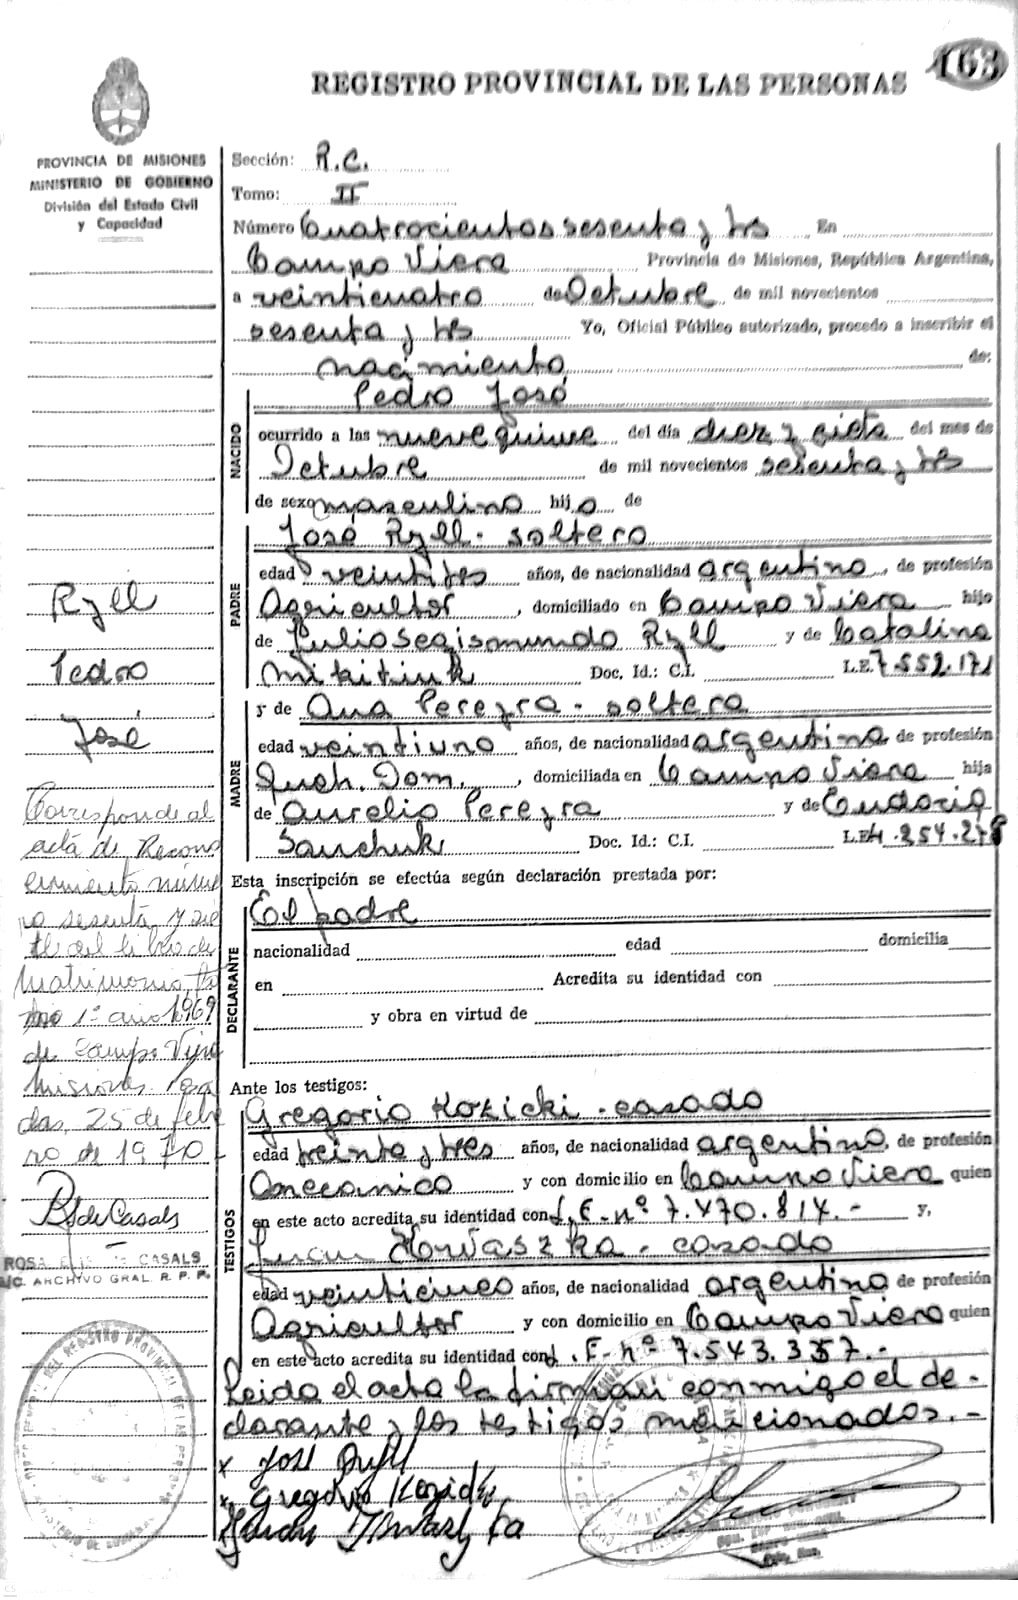 163
REGISTRO PROVINCIAL DE LAS PERSONAS
PROVINCIA DE MISIONES
MINISTERIO DE GOBIERNO
División del Estado Civil
y Capacidad
Sección: R.C.
Tomo: II
Número Cuatrocientos sesenta y tres En
Campo Viera Provincia de Misiones, República Argentina,
a veinticuatro de Octubre de mil novecientos
sesenta y tres Yo, Oficial Público autorizado, procedo a inscribir el
nacimiento de:
NACIDO
Pedro José
ocurrido a las nueve quince del día diez y siete del mes de
Octubre de mil novecientos sesenta y tres
de sexo masculino hijo de
PADRE
José Ryll - soltero
edad veintitres años, de nacionalidad argentino, de profesión
Agricultor, domiciliado en Campo Viera hijo
de Julio Segismundo Ryll y de Catalina
Mikitiuk Doc. Id.: C.I. L.E. 7.552.171
MADRE
y de Ana Pereyra - soltera
edad veintiuno años, de nacionalidad argentina de profesión
Queh. Dom., domiciliada en Campo Viera hija
de Aurelio Pereyra y de Eudoxia
Sauchuk Doc. Id.: C.I. L.E. 4.254.278
Esta inscripción se efectúa según declaración prestada por:
DECLARANTE
El padre
nacionalidad edad domicilia
en Acredita su identidad con
y obra en virtud de
Ante los testigos:
TESTIGOS
Gregorio Kozicki - casado
edad treinta y tres años, de nacionalidad argentino, de profesión
mecanico y con domicilio en Campo Viera quien
en este acto acredita su identidad con L.E. nº 7.470.814.- y,
Juan Kowaszka - casado
edad veinticinco años, de nacionalidad argentino de profesión
Agricultor y con domicilio en Campo Viera quien
en este acto acredita su identidad con L.E. nº 7.543.357.-
Leida el acta la firman conmigo el de-
clarante y los testigos mencionados.-
x José Ryll
x Gregorio Kozicki
Ryll
Pedro
José
Corresponde al
acta de Recono
cimiento núme
ro sesenta y sie
te del libro de
Matrimonio, To
mo 1º año 1969
de Campo Viera
Misiones. Posa
das, 25 de febre
ro de 1970
B. de Casals
ROSA CASALS
ARCHIVO GRAL. R. P. P.